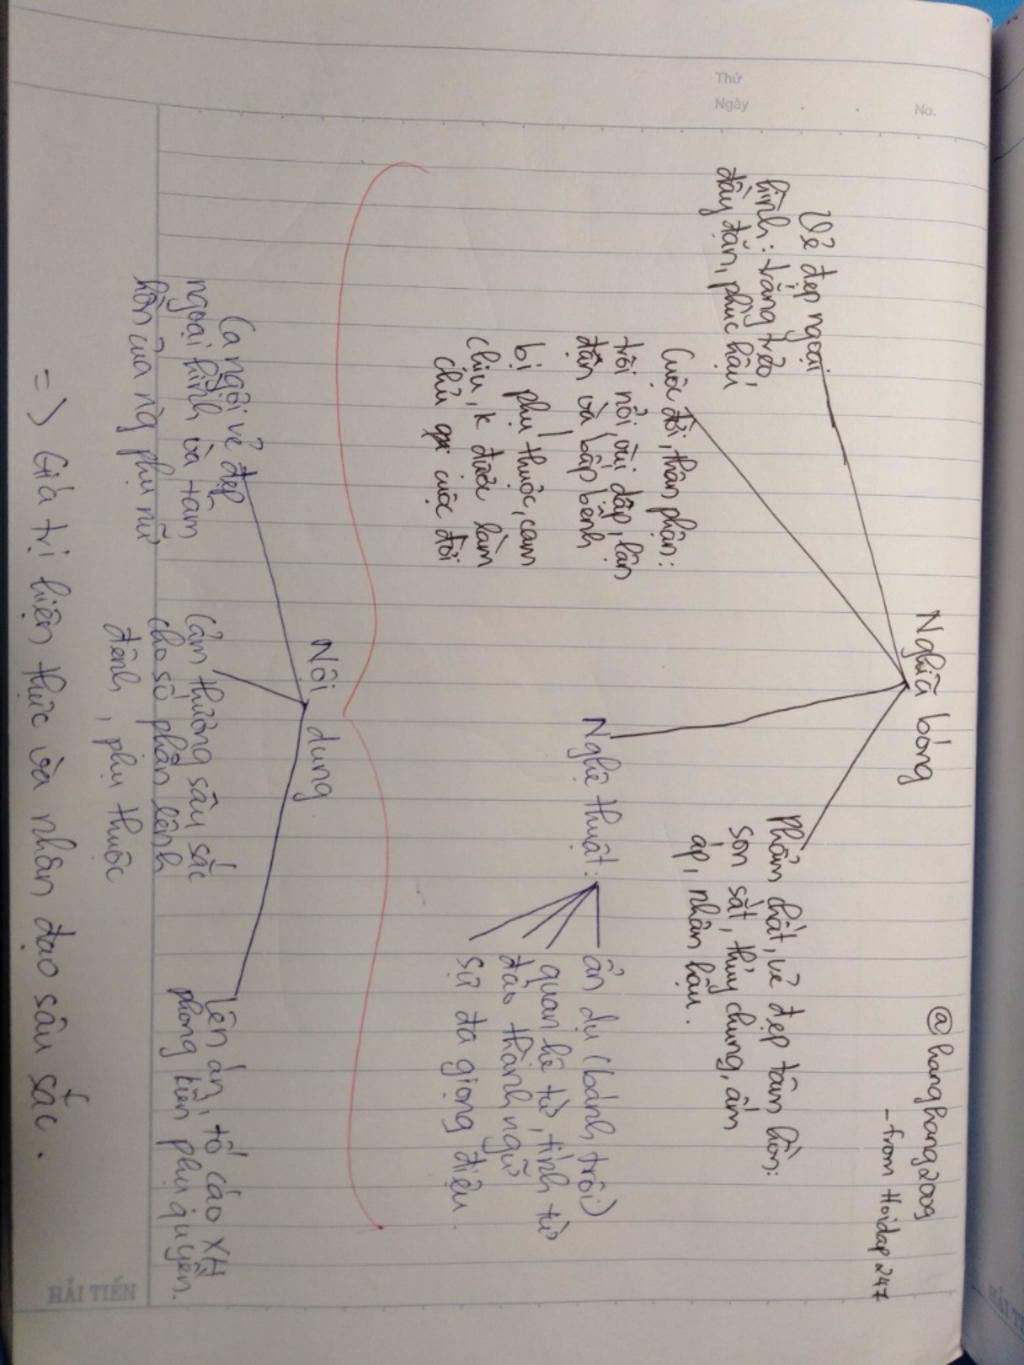 Thứ
Ngày
No.
@hanghang2009
-from Hoidap 247
Nghĩa bóng
Vẻ đẹp ngoại
hình: trắng trẻo,
đầy đặn, phúc hậu
Cuộc đời, thân phận:
trôi nổi, vùi dập, lận
đận và bấp bênh
bị phụ thuộc, cam
chịu, k được làm
chủ cuộc đời
Nghệ thuật:
ẩn dụ (bánh trôi)
quan hệ từ, tính từ
đảo thành ngữ
sự đa giọng điệu.
Phẩm chất, vẻ đẹp tâm hồn:
son sắt, thủy chung, ấm
áp, nhân hậu.
Nội dung
Ca ngợi vẻ đẹp
ngoại hình và tâm
hồn của ng phụ nữ
Cảm thương sâu sắc
cho số phận lênh
đênh, phụ thuộc
Lên án, tố cáo XH
phong kiến phụ quyền.
=> Giá trị hiện thực và nhân đạo sâu sắc.
HẢI TIẾN
HẢI TI